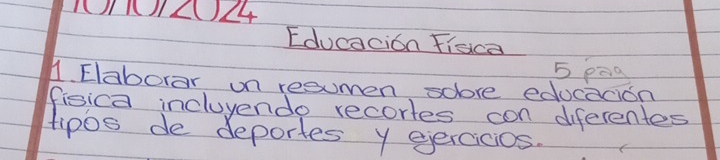 10/10/2024
Educación Física
5 pag
1. Elaborar un resumen sobre educación
física incluyendo recortes con diferentes
tipos de deportes y ejercicios.